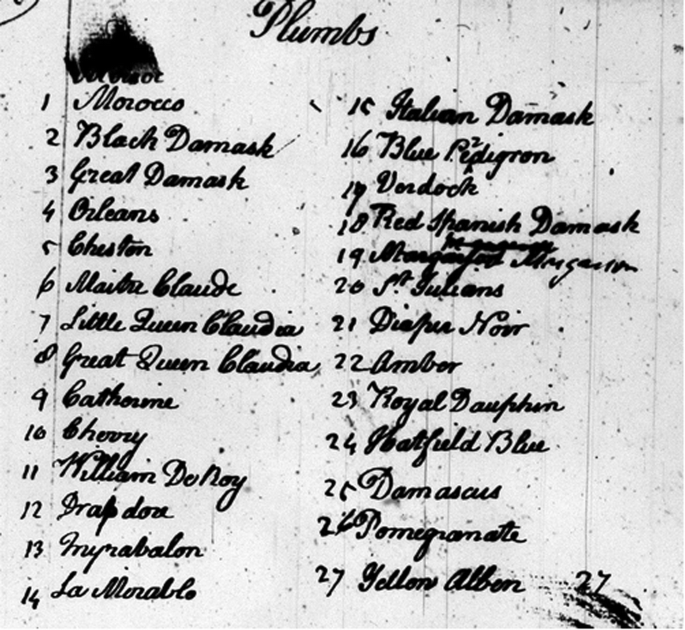 Plumbs
1 Morocco
2 Black Damask
3 Great Damask
4 Orleans
5 Cheston
6 Maitre Claude
7 Little Queen Claudia
8 Great Queen Claudia
9 Catherine
10 Cherry
11 William De Roy
12 Drap dore
13 Myrabalon
14 La Morablo
15 Italian Damask
16 Blue Perdigron
17 Verdock
18 Red Spanish Damask
19
20 St Julians
21 Diaper Noir
22 Amber
23 Royal Dauphin
24 Hatfield Blue
25 Damascus
26 Pomegranate
27 Yellow Alben 27